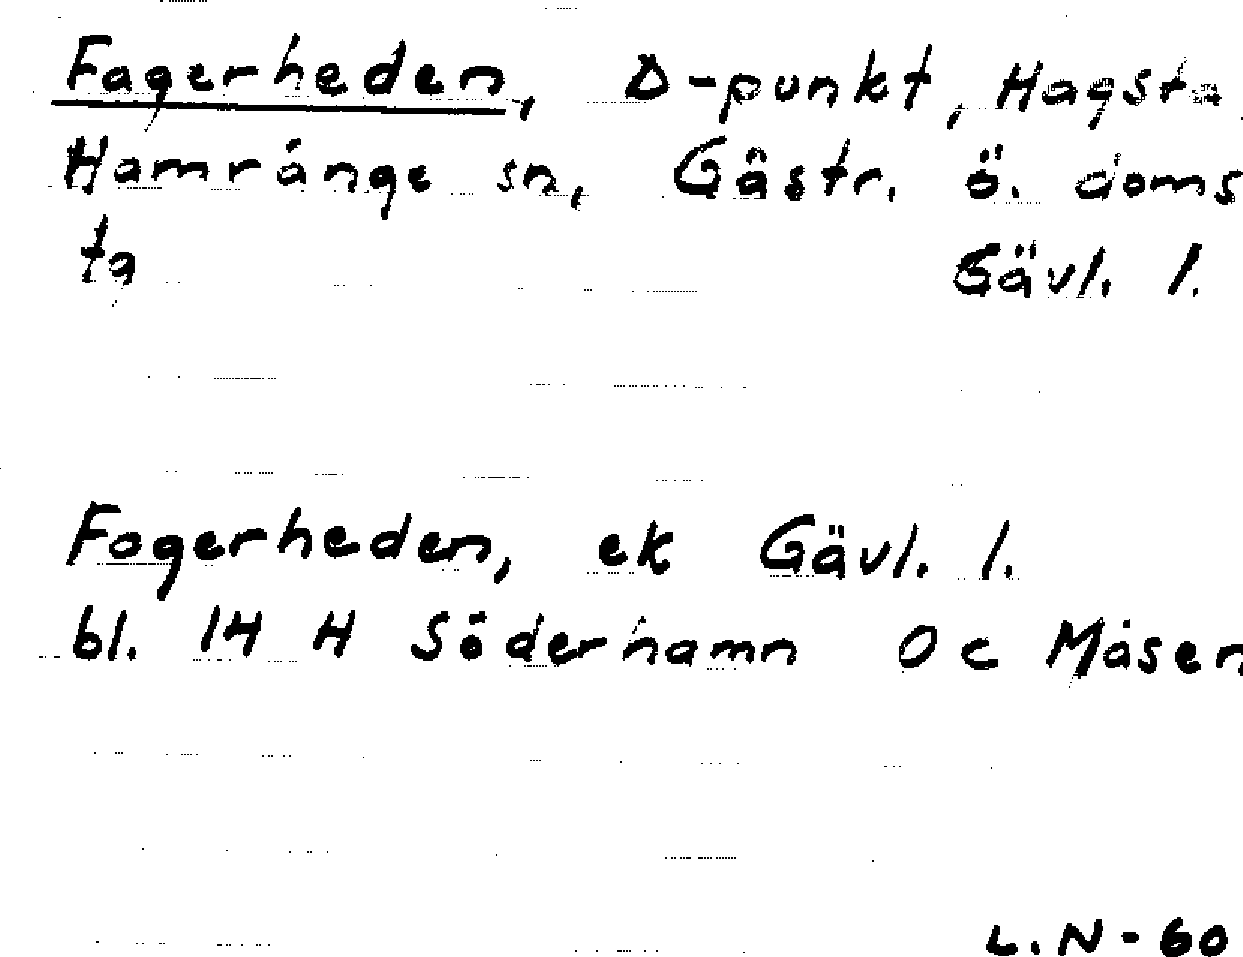 Fagerheden, D-punkt, Hagsta
Hamrånge sn, Gästr. ö. doms
ta Gävl. l.
Fagerheden, ek Gävl. l.
bl. 14 H Söderhamn 0 c Måsen
L.N-60